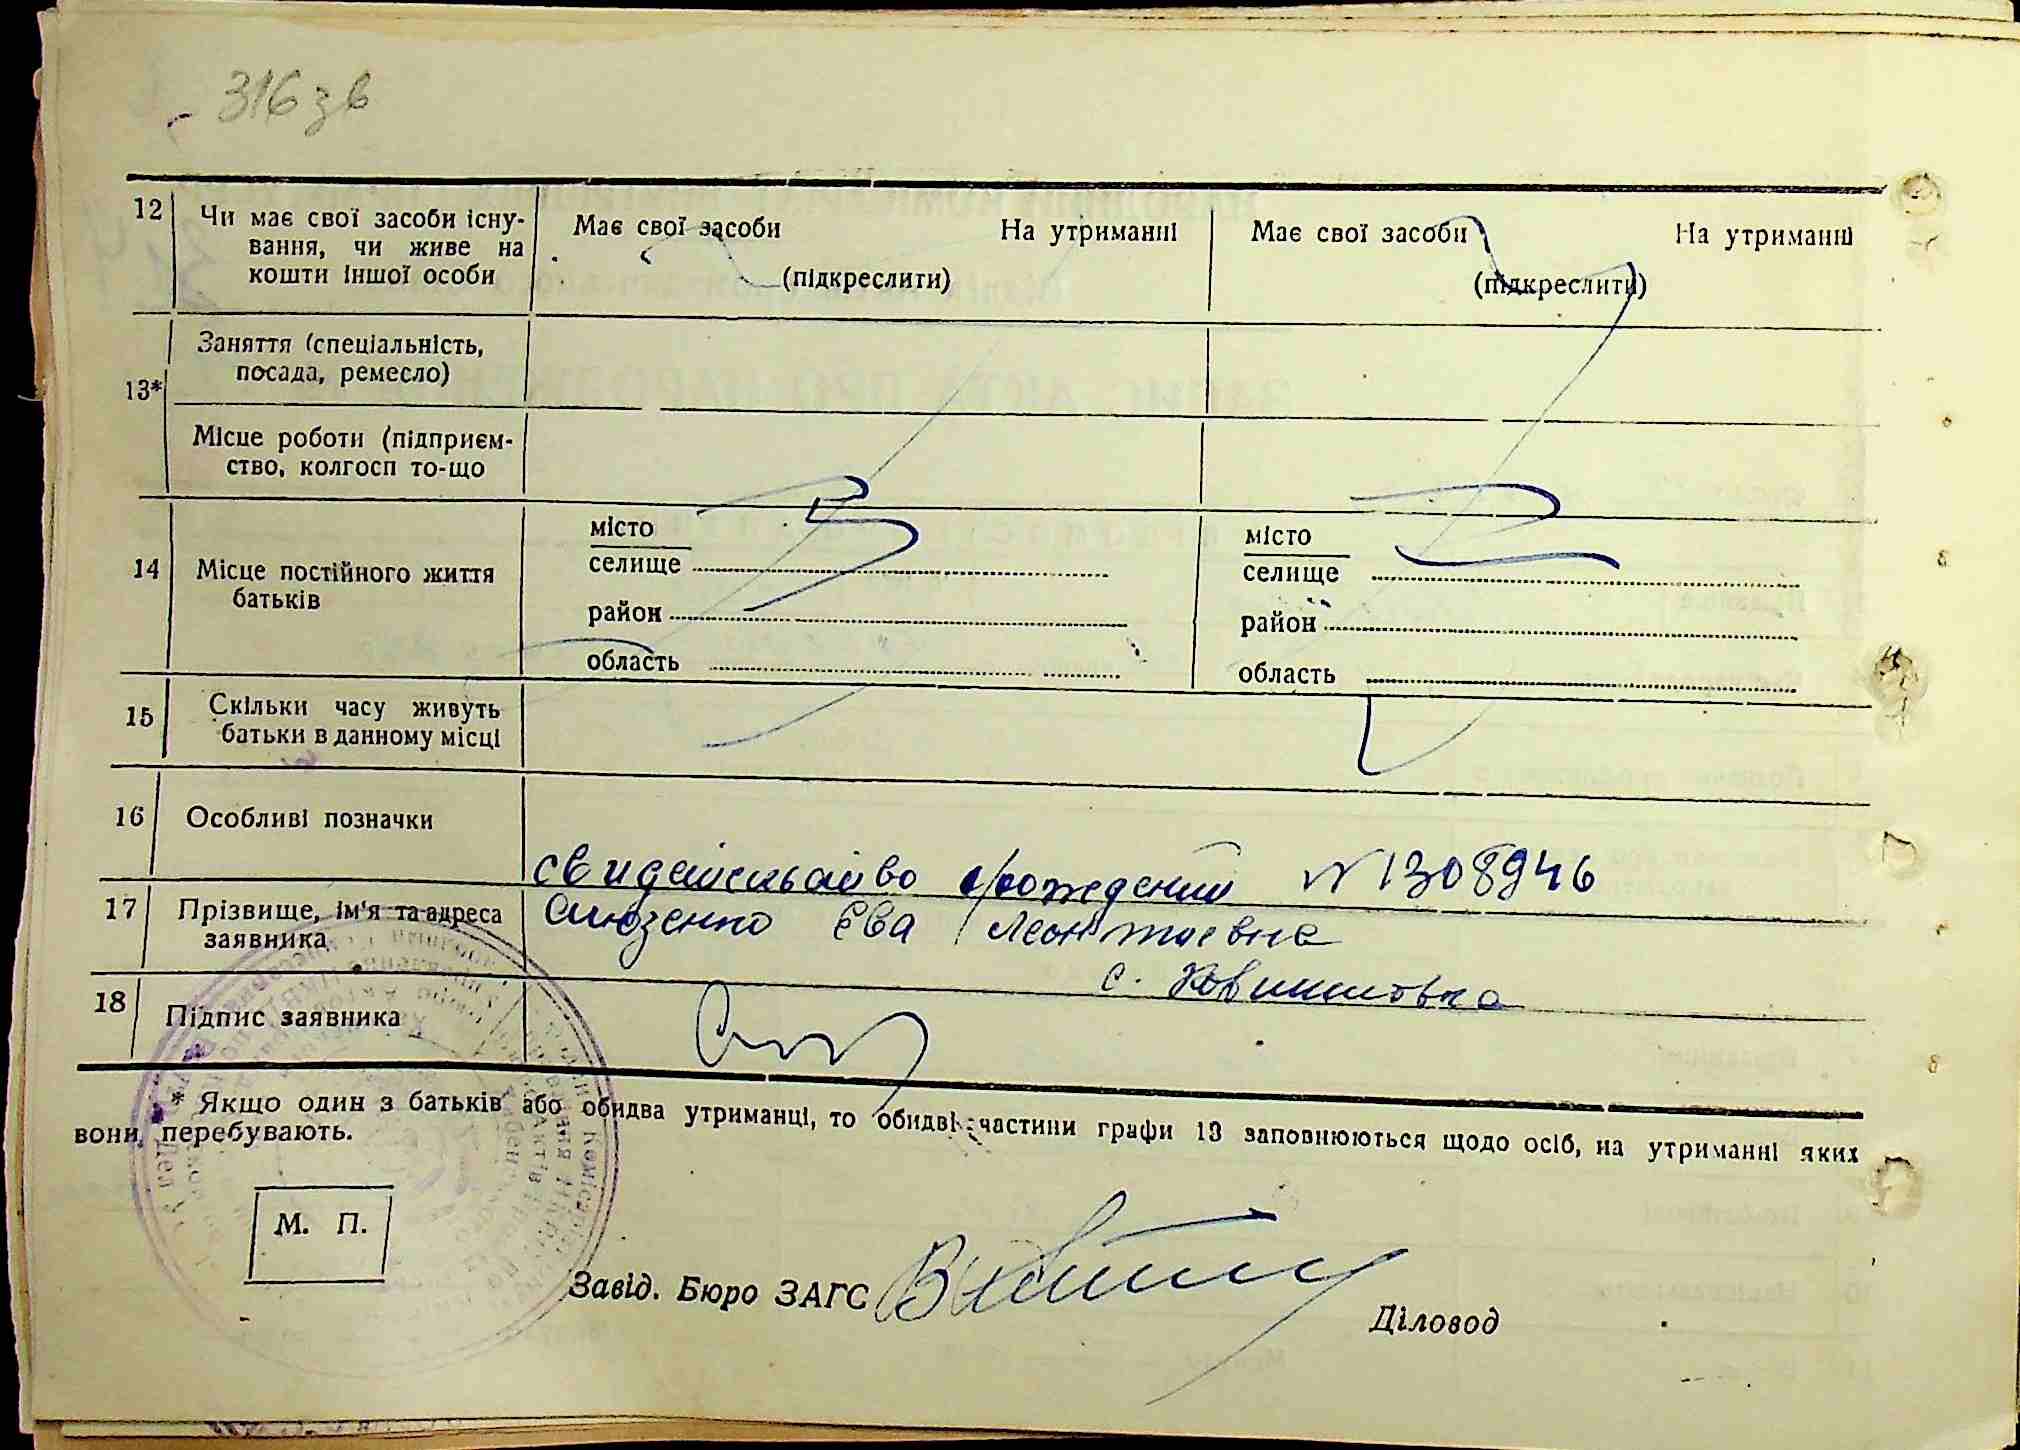 316 зв
12 Чи має свої засоби існу- Має свої засоби На утриманні Має свої засоби На утриманні
вання, чи живе на
кошти іншої особи (підкреслити) (підкреслити)
Заняття (спеціальність,
посада, ремесло)
13*
Місце роботи (підприєм-
ство, колгосп то-що
місто місто
14 Місце постійного життя селище селище
батьків
район район
область область
15 Скільки часу живуть
батьки в данному місці
16 Особливі позначки
свидетельство о рождении №1308946
17 Прізвище, ім'я та адреса Слюзенко Єва Леонтиевна
заявника
с.
18 Підпис заявника
* Якщо один з батьків або обидва утриманці, то обидві частини графи 13 заповнюються щодо осіб, на утриманні яких
вони перебувають.
М. П.
Завід. Бюро ЗАГС
Діловод